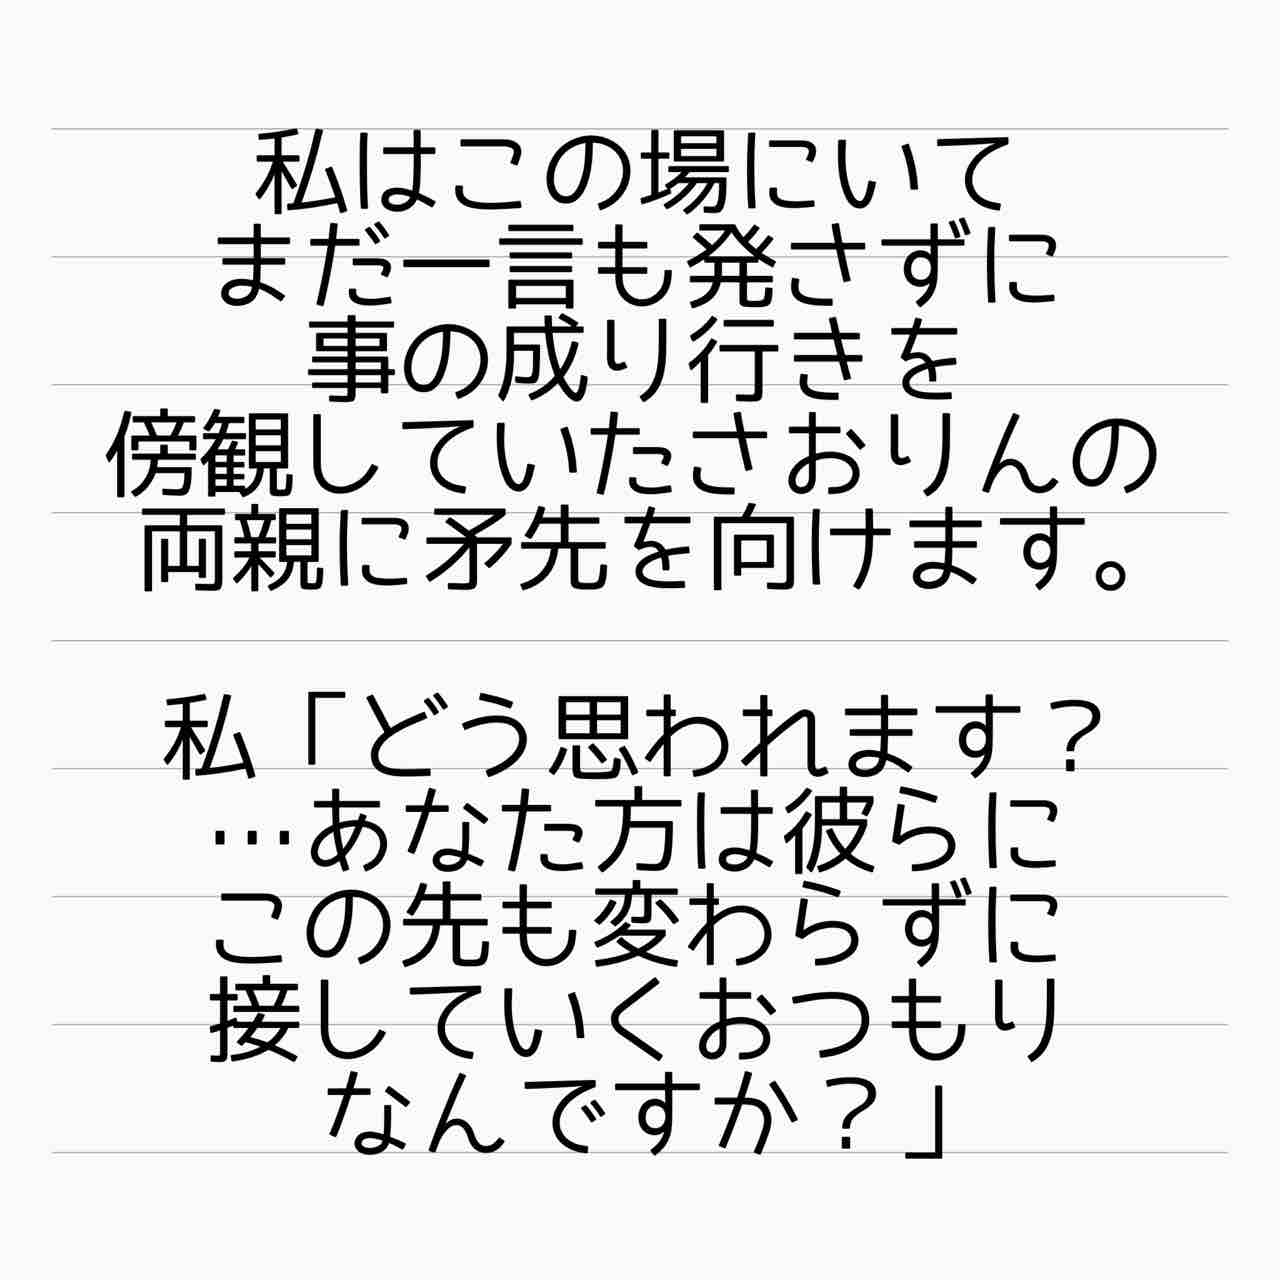 私はこの場にいて
まだ一言も発さずに
事の成り行きを
傍観していたさおりんの
両親に矛先を向けます。
私「どう思われます？
…あなた方は彼らに
この先も変わらずに
接していくおつもり
なんですか？」